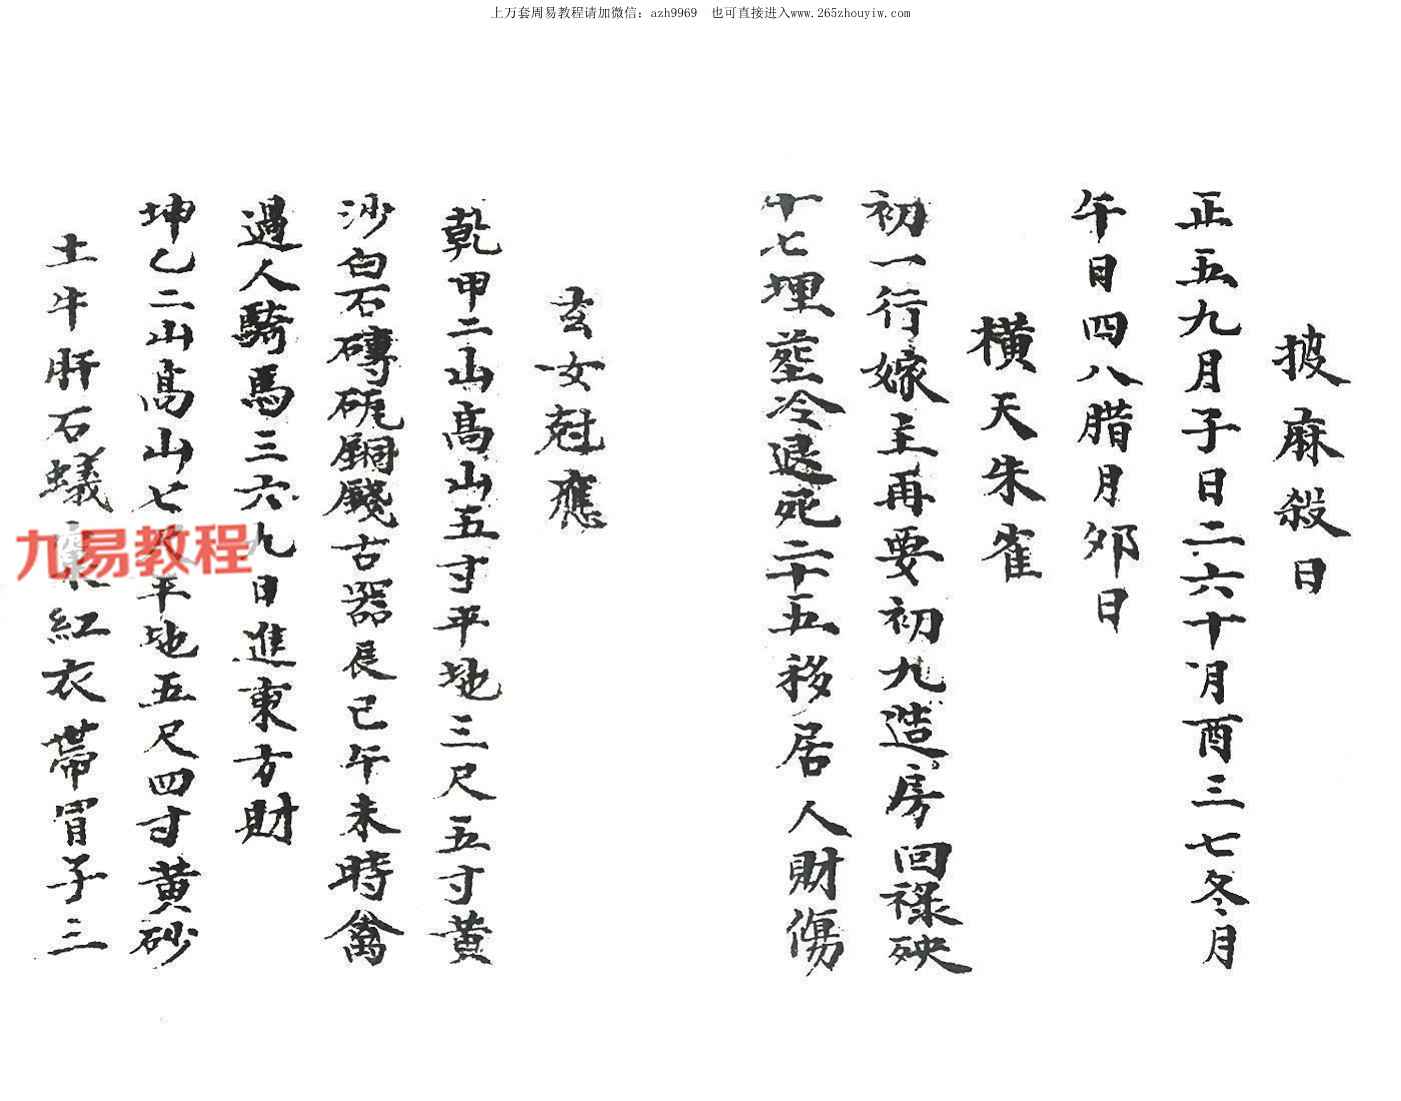 上万套周易教程请加微信：azh9969 也可直接进入www.265zhouyiw.com
披麻殺日
正五九月子日二六十月酉三七冬月
午日四八腊月夘日
橫天朱雀
初一行嫁主再要初九造房回祿殃
十七埋塟冷退死二十五移居人財傷
玄女尅應
乾甲二山高山五寸平地三尺五寸黄
沙白石磚砙銅錢古器辰巳午未時禽
過人騎馬三六九日進東方財
坤乙二山高山七尺平地五尺四寸黄砂
土牛肝石蟻 紅衣帶冐子三
九易教程